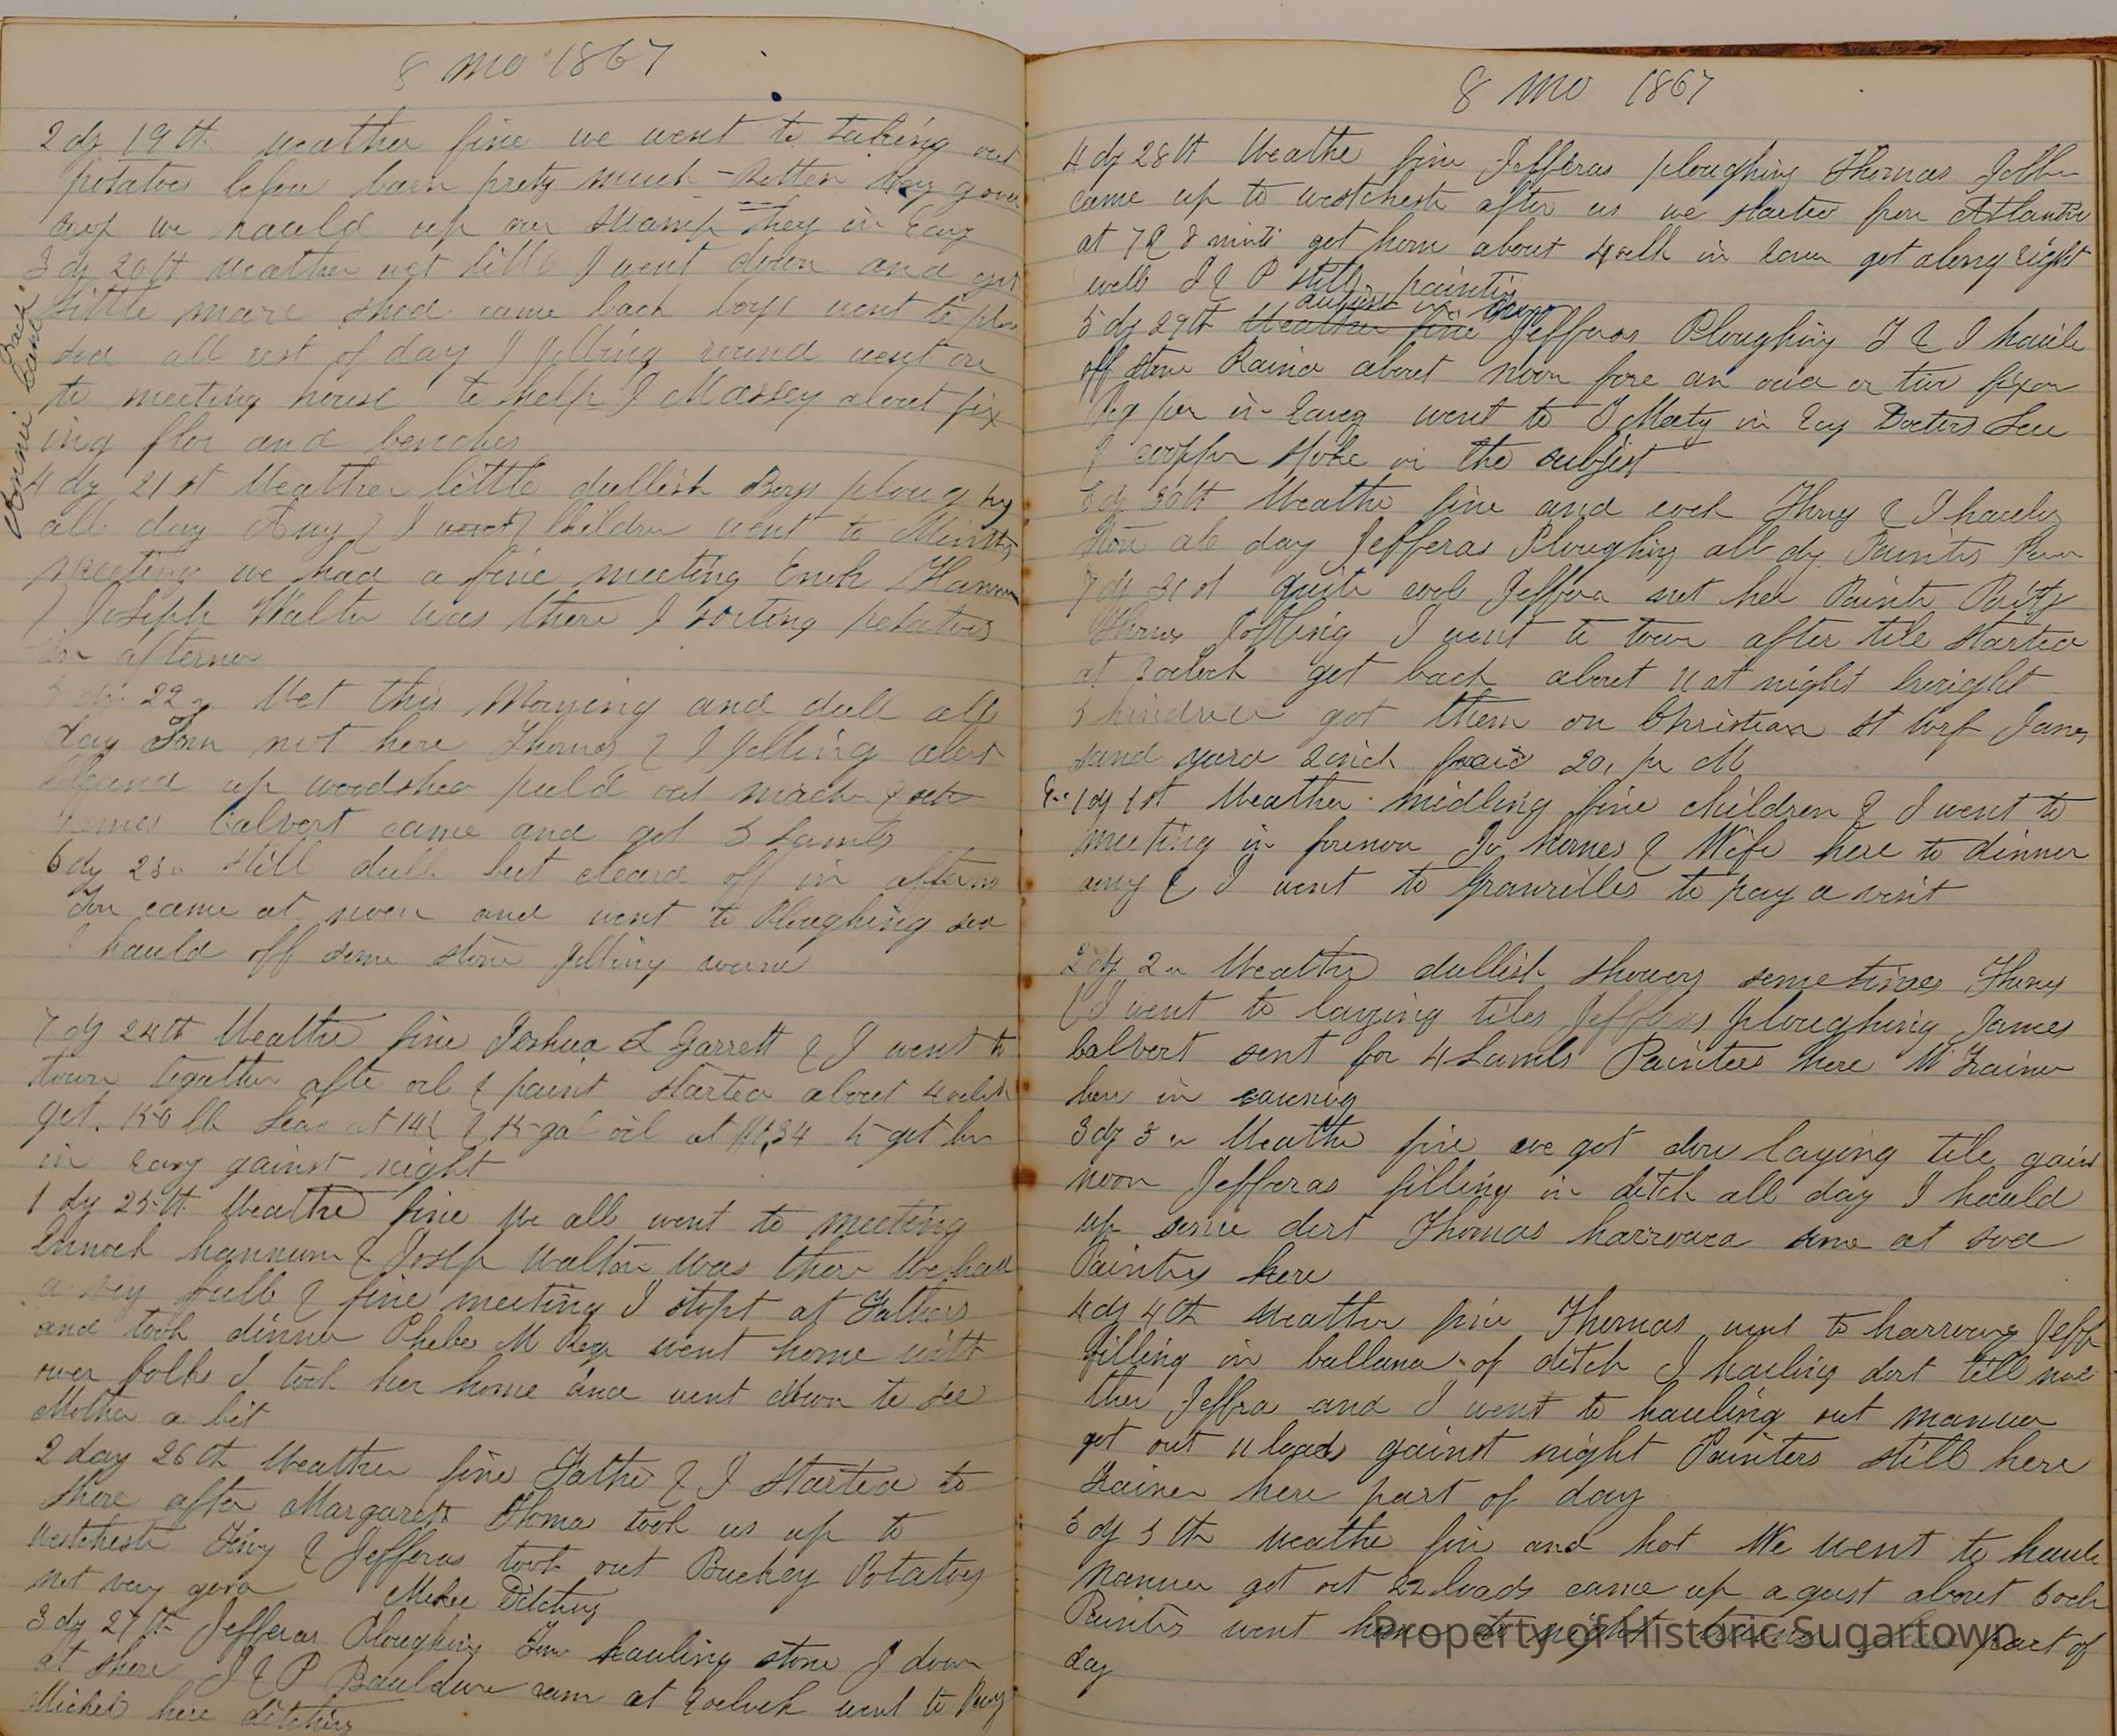 8 mo 1867
2 dy 19th weather fine we went to taking out
potatoes before barn prety much Rotten
we hauld up our swamp hey in Eavg
3 dy 20th weather wet little I went down and got
little mare shod came back boys went to
sod all rest of day I jobbing round went on
to meeting house to help J Massey about fix
ing flor and benches
4 dy 21st Weather little dullish Boys ploughing
all day Amy & I & Children went to Ministry
Meeting we had a fine meeting Enoch Hannum
& Joseph Walton was there I sorting potatoes
in afternoon
5 dy 22 Wet this Morning and dull all
day Tom not here Thomas & I jobbing about
up woodshed puld out
James Calvert came and got 5 Lambs
6 dy 23 still dull but cleard off in afterno
Tom came at noon and went to Ploughing sod
I hauld off some stone jobbing round
7 dy 24th Weather fine Joshua L Garrett & I went to
town togather after oil & paint started about 4 oclock
get 150 lb Lead at 14½ & 15 gal oil at $1,34 get hom
in Eavg gainst night
1 dy 25th Weather fine We all went to meeting
Ennoch hannum & Josep Walton Was there We had
a very full & fine meeting I stopt at Fathers
and took dinner Phebe M went home with
ower folks I took her home and went down to see
Mother a bit
2 day 26th Weather fine Father & I started to
shore after Margarett Thomas took us up to
Westchester & Jefferas took out Buckey Potatoes
not very good Mikee Ditching
3 dy 27th Jefferas Ploughing Tom hauling stone I down
at shore J & P came at oclock went to
Michel here ditching
8 mo 1867
4 dy 28th Weathe fine Jefferas ploughing Thomas
came up to westchester after us we started from Atlantic
at 7 & 8 minits got hom about 4 in got along right
well J & P still painting
5 dy 29th Weather fine Jefferas Ploughing T & I hauling
off stone Raind about noon fore an our or two
in Eaveg went to in Eavg Doctors
J cooper spoke on the subject
6 dy 30th Weathe fine and cool Thomas & I hauling
stone all day Jefferas Ploughing all dy Painters
7 dy 31st quite cool Jeffera not her Painters
Thomas Jobbing I went to town after tile started
at oclock got back about 11 at night brought
5 hundred got them on Christian St worf Janes
sand yard 2 inch paid 20, per M
1 dy 1st Weather midling fine children & I went to
meeting in forenoon Jo hornes & Wife here to dinner
amy & I went to Granvilles to pay a visit
2 dy 2 Weather dullish showery some times Thomas
& I went to laying tiles Jefferas ploughing James
Calvert sent for 4 Lambs Painters here W Trainer
here in eavenig
3 dy 3 Weathe fine we got don laying tile gainst
noon Jefferas filling in ditch all day I hauld
up some dirt Thomas harroward some at sod
Painters here
4 dy 4th Weather fine Thomas went to harrowing Jeff
filling in ballana of ditch I hauling dirt till noo
then Jeffra and I went to hauling out manuer
got out 11 loads gainst night Painters still here
Trainer here part of day
5 dy 5th Weathe fine and hot We went to haul
Manuer got out 22 loads came up a gust about 6 ock
Painters went home to night part of
day
Property of Historic Sugartown